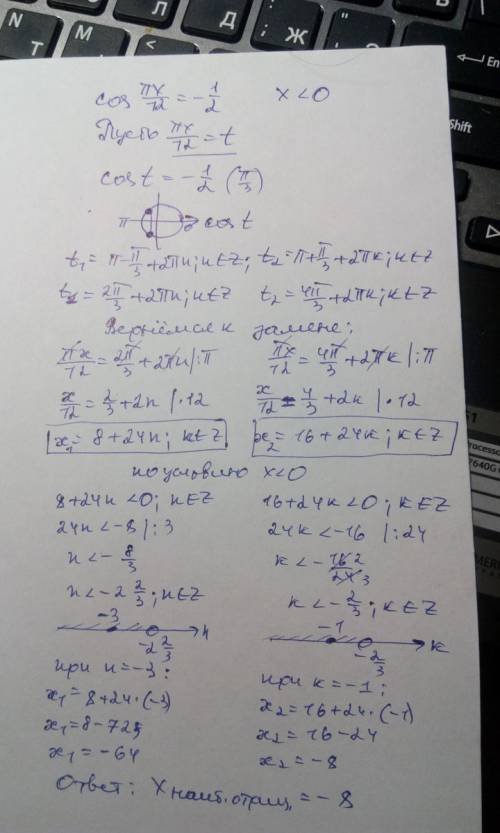 cos πx/12 = -1/2    x<0
Пусть πx/12 = t
cos t = -1/2 (π/3)
π    cos t
t₁ = π - π/3 + 2πn; n∈Z;    t₂ = π + π/3 + 2πk; k∈Z
t₁ = 2π/3 + 2πn; n∈Z    t₂ = 4π/3 + 2πk; k∈Z
Вернёмся к замене:
πx/12 = 2π/3 + 2πn |:π    πx/12 = 4π/3 + 2πk |:π
x/12 = 2/3 + 2n |·12    x/12 = 4/3 + 2k |·12
x₁ = 8 + 24n; n∈Z    x₂ = 16 + 24k; k∈Z
по условию x<0
8 + 24n <0; n∈Z    16 + 24k <0; k∈Z
24n < -8 |:3    24k < -16 |:24
n < - 8/3    k < - 16 2/24 3
n < -2 2/3; n∈Z    k < - 2/3; k∈Z
-3    -2 2/3    n    -1    - 2/3    k
при n = -3:    при k = -1:
x₁ = 8 + 24·(-3)    x₂ = 16 + 24·(-1)
x₁ = 8 - 72;    x₂ = 16 - 24
x₁ = -64    x₂ = -8
Ответ: x наиб. отриц. = -8
Л
Д
Ж
N
Т
M
Ь
Б
Shift
Ent